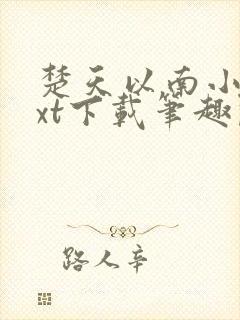 楚天以南小
xt下載筆趣
路人辛